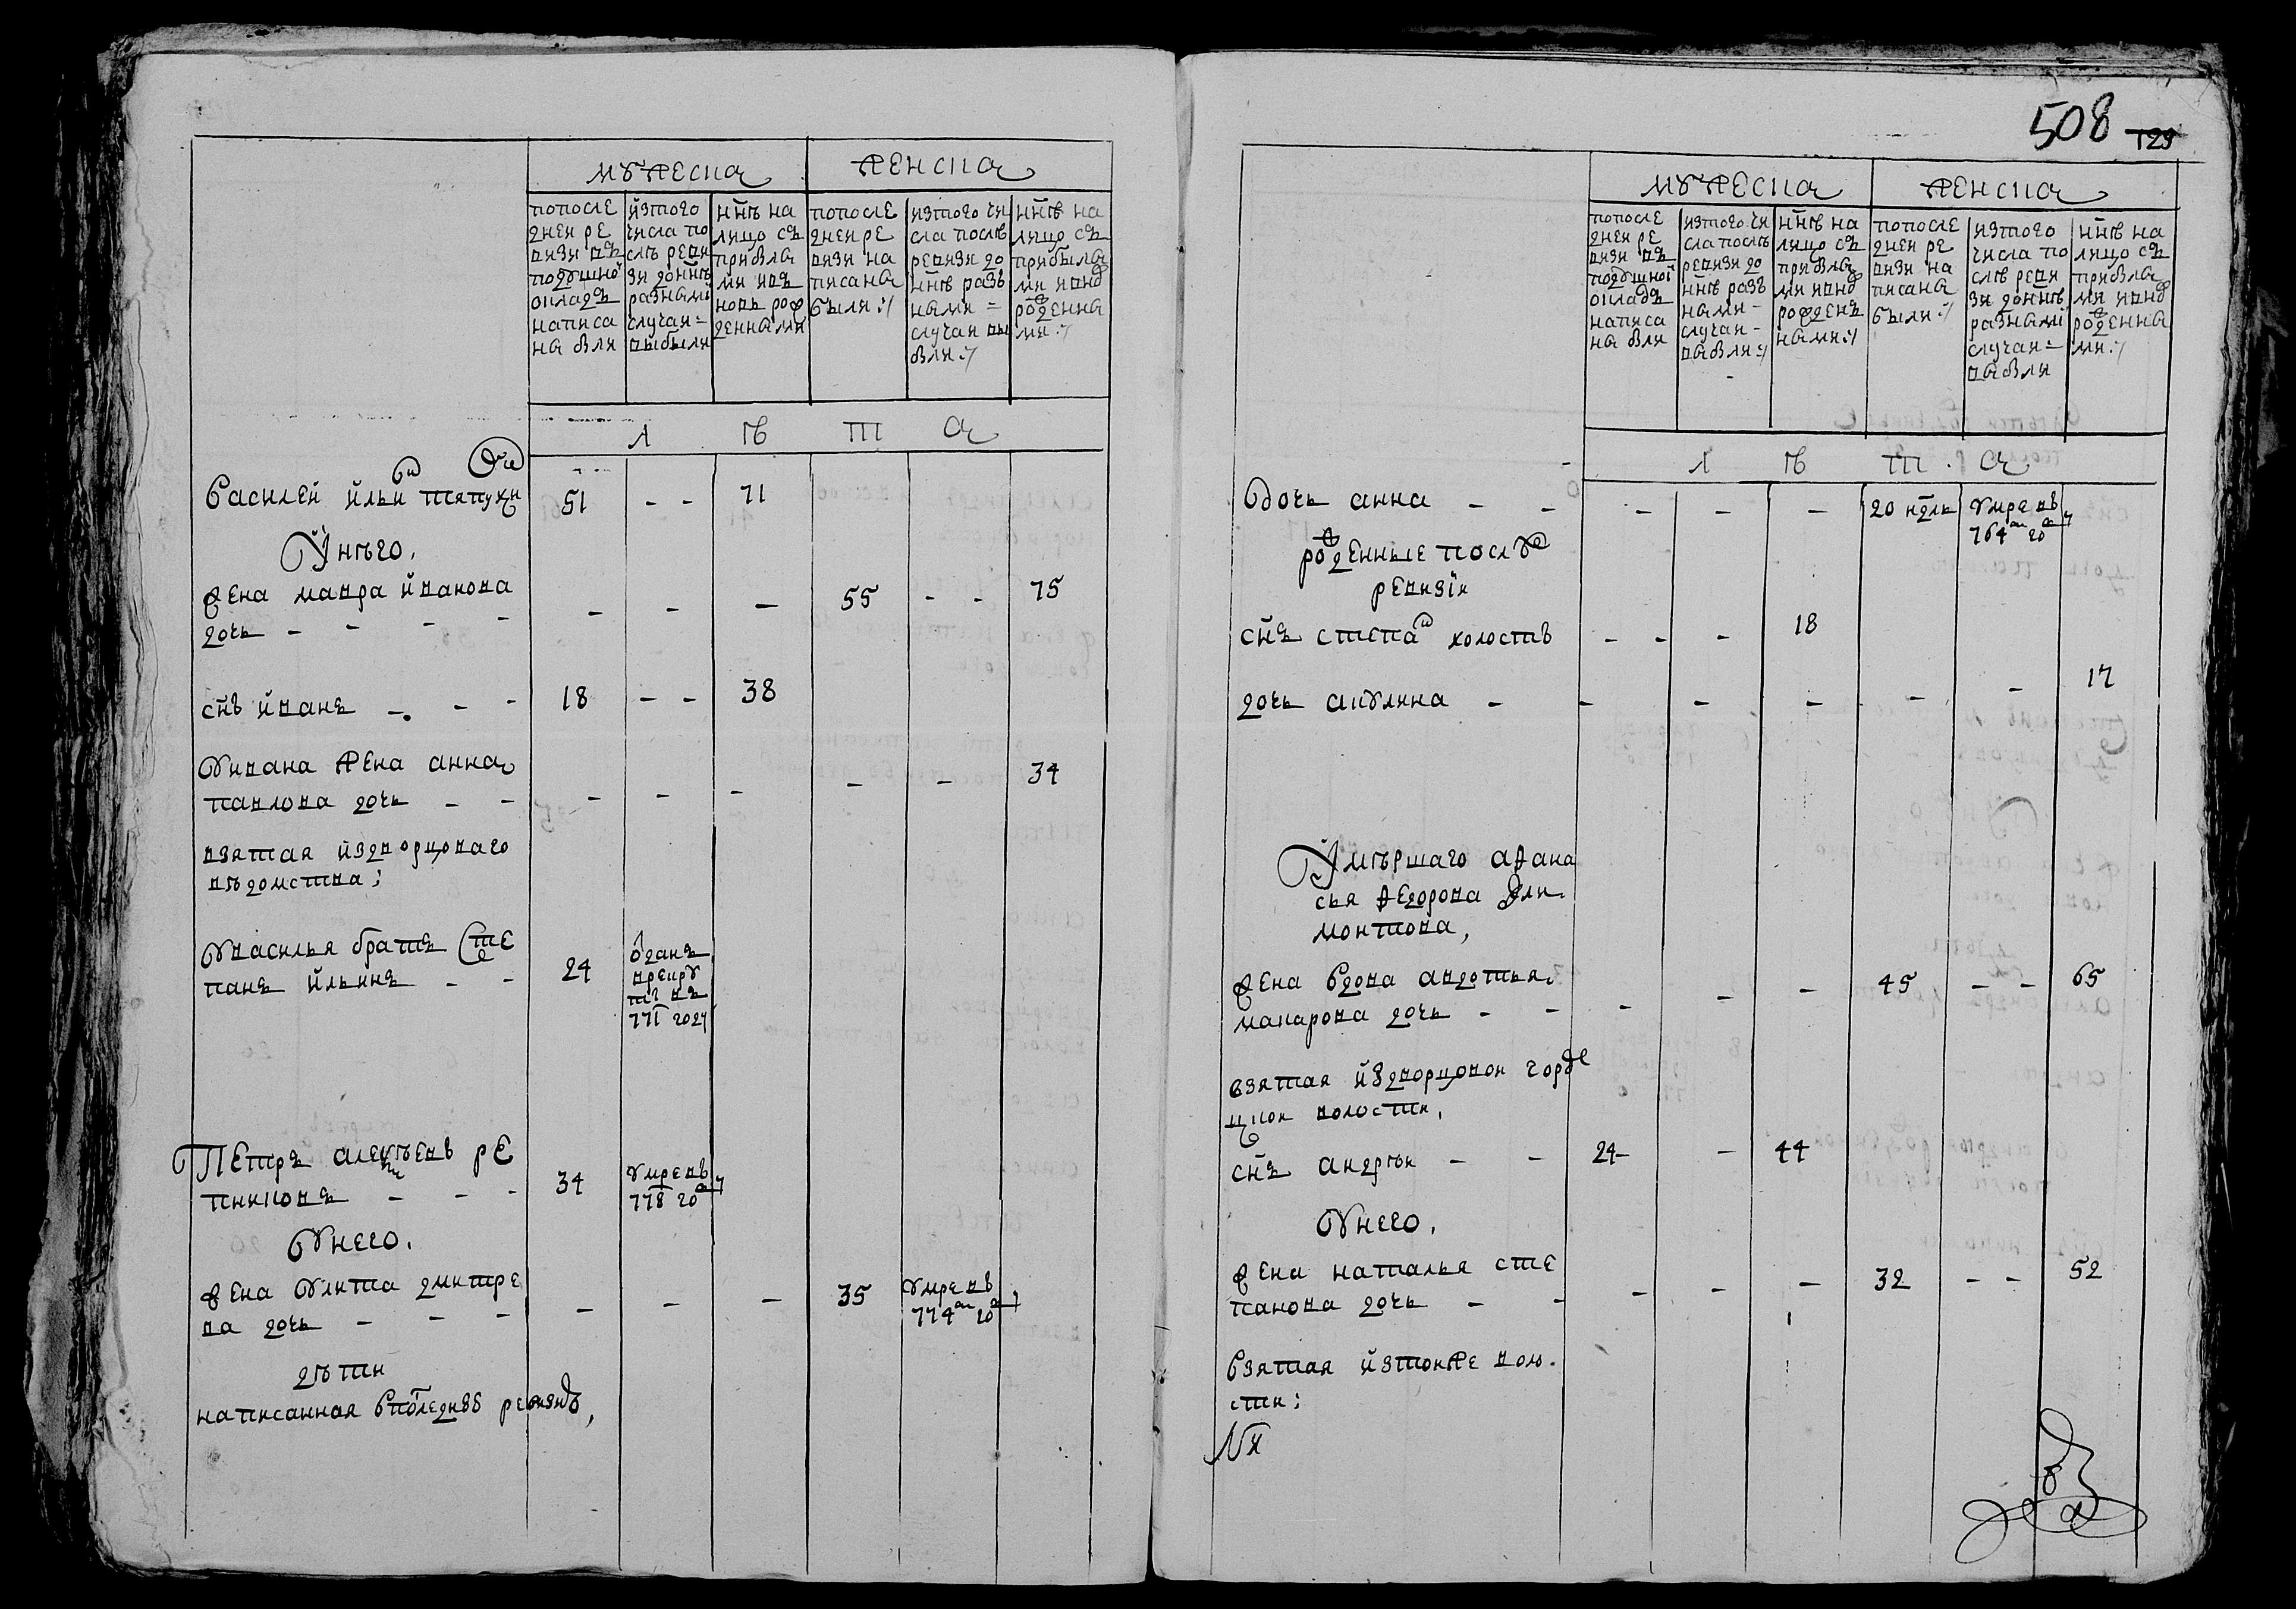 мужеска
женска
попосле
дней ре
визи въ
подушной
окладъ
написа
ны были
изтого
числа по
слѣ реви
зи донынѣ
разными
случаи=
выбыли
нынѣ на
лицо съ
прибылы
ми и въ
новь рож
денными
попосле
дней ре
визи на
писаны
были :/
изтого чи
сла послѣ
ревизи до
нынѣ разъ
ными =
случаи вы
были :/
нынѣ на
лицо съ
прибылы
ми и внов
рожденны
ми :/
л ѣ т а
Василей Ильин Тяпухи
51 - - 71
У него,
жена мавра иванова
дочь - - - - - - - 55 - - 75
снъ иванъ - - - 18 - - 38
У ивана жена анна
павлова дочь - - - - - - - 34
взятая издворцоваго
вѣдомства;
У василья братъ Сте
панъ ильинъ - - 24
отданъ
врекру
ты въ
771 году
Петръ алексѣевъ ре
пниковъ - - - 34
умревъ
778 году
У него,
жена улита дмитре
ва дочь - - - - - - 35
умревъ
774м году
дѣти
написанная впоследнѣй ревизиѣ,
508 129
мужеска
женска
попосле
дней ре
визи въ
подушной
окладъ
написа
ны были
изтого чи
сла послѣ
ревизи до
нынѣ разъ
ными -
случаи -
выбыли :/
нынѣ на
лицо съ
прибылы
ми и внов
рожденъ
ными :/
попосле
дней ре
визи на
писаны
были :/
изтого
числа по
слѣ реви
зи донынѣ
разными
случаи =
выбыли
нынѣ на
лицо съ
прибылы
ми и внов
рожденны
ми :/
л ѣ т а
дочь анна - - - - - 20 нделъ
умревъ
764м году
рожденные послѣ
ревизiи
снъ степан холостъ - - - 18
дочь акулина - - - - - - 17
Умѣршаго афана
сья федорова
монтова,
жена вдова авдотья
макарова дочь - - - - - 45 - - 65
взятая издворцовой горде
цкой волости,
снъ андрѣй - - 24 - 44
У него,
жена наталья сте
панова дочь - - - - - 32 - - 52
взятая изтойже воло
сти;